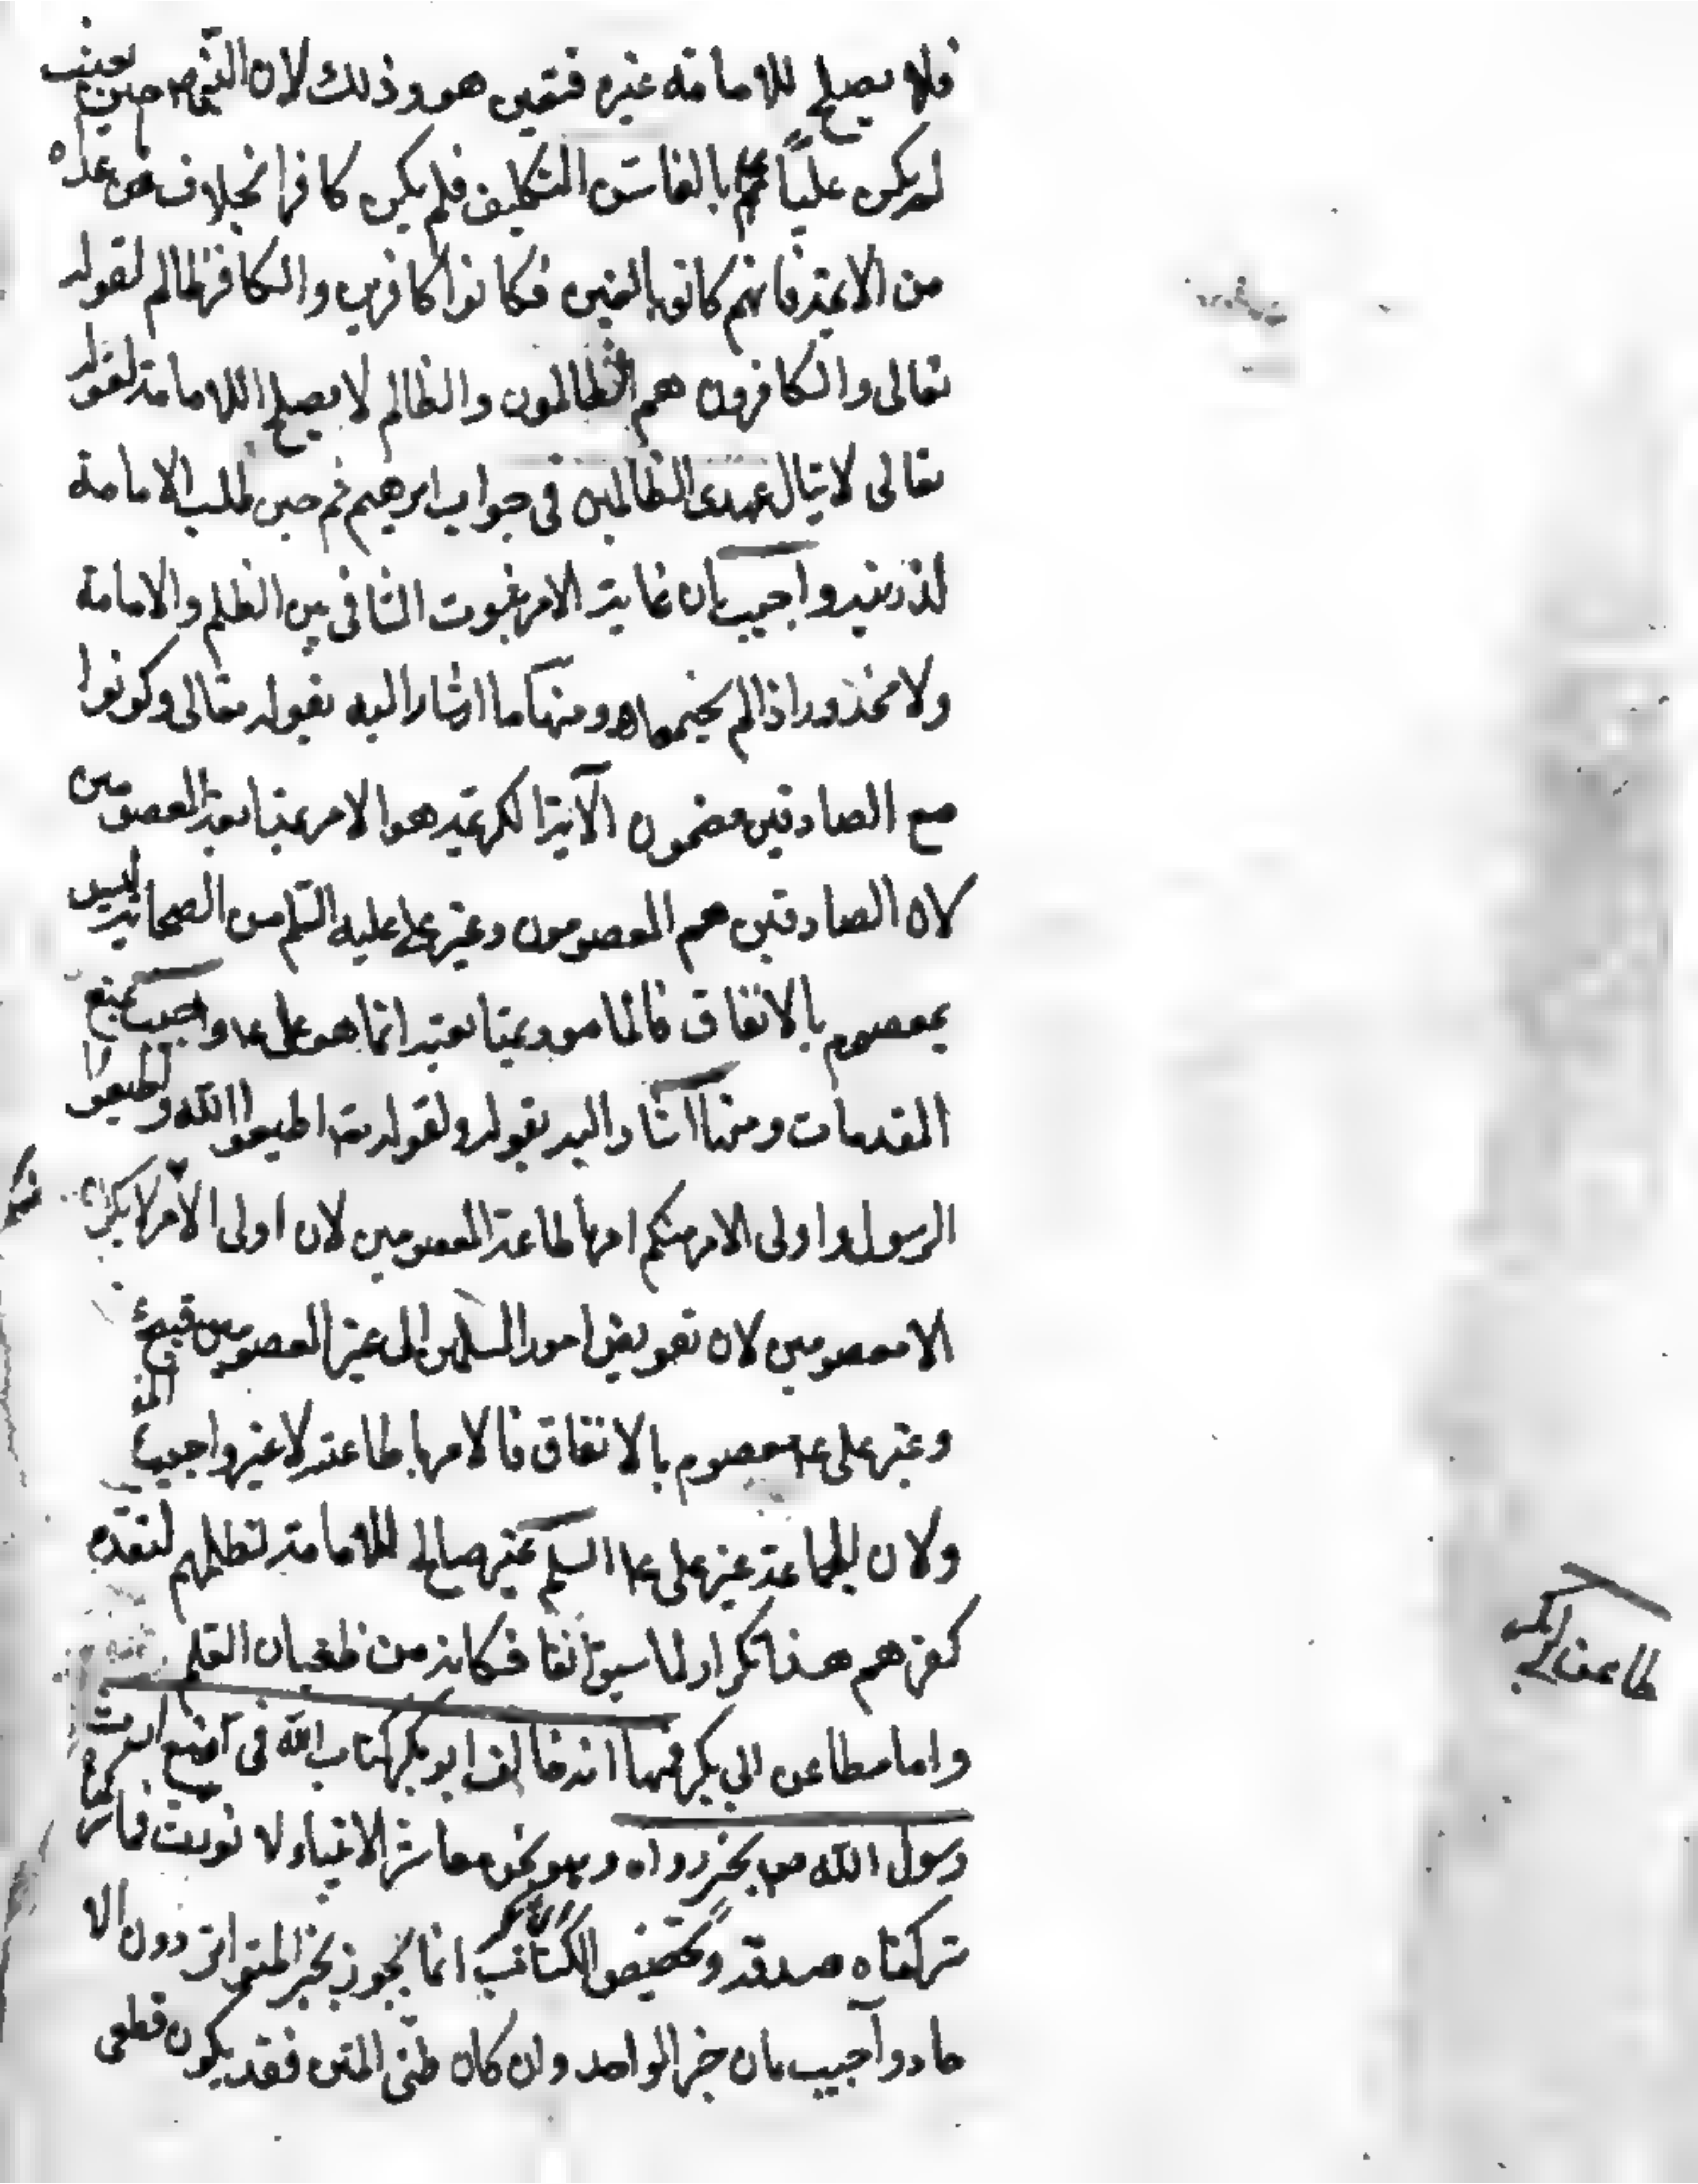 فلا يصلح للامامة غيره فتعين هو وذلك لان النبي صم حين بعث
لم يكن عليا عم بالغا سن التكليف فلم يكن كافرا بخلاف من عداه
من الائمة فانهم كانوا بالغين فكانوا كافرين والكافر ظالم لقوله
تعالى والكافرون هم الظالمون والظالم لا يصلح للامامة لقوله
تعالى لا ينال عهدى الظالمين فى جواب ابرهيم عم حين طلب الامامة
لذريته واجيب بان غاية الامر ثبوت التنافى بين الظلم والامامة
ولا محذور اذا لم يجتمعا ومنها ما اشار اليه بقوله تعالى وكونوا
مع الصادقين مضمون الآية الكريمة هو الامر بمتابعة المعصومين
لان الصادقين هم المعصومون وغير على عليه السلم من الصحابة ليس
بمعصوم بالاتفاق فالمامور بمتابعته انما هو على عم واجيب بمنع
المقدمات ومنها ما اشار اليه بقوله ولقوله تعا اطيعوا الله واطيعوا
الرسول واولى الامر منكم امر باطاعة المعصومين لان اولى الامر لا يكون
الا معصومين لان تفويض امور المسلمين الى غير المعصومين قبيح
وغير على عم معصوم بالاتفاق فالامر باطاعته لا غير واجيب
ولان الجماعة غير على ع السلم غير صالح للامامة لظلمهم لتقدم
كفرهم هذا تكرار لما سبق آنفا فكانه من طغيان القلم
واما مطاعن ابي بكر فمنها انه خالف ابو بكر كتاب الله فى منع ارث
رسول الله صم بخبر رواه وهو نحن معاشر الانبياء لا نورث فما
تركناه صدقة وتخصيص الكتاب انما يجوز بخبر المتواتر دون الا
حاد واجيب بان خبر الواحد وان كان ظنى المتن فقد يكون قطعى
مطاعن ابي بكر